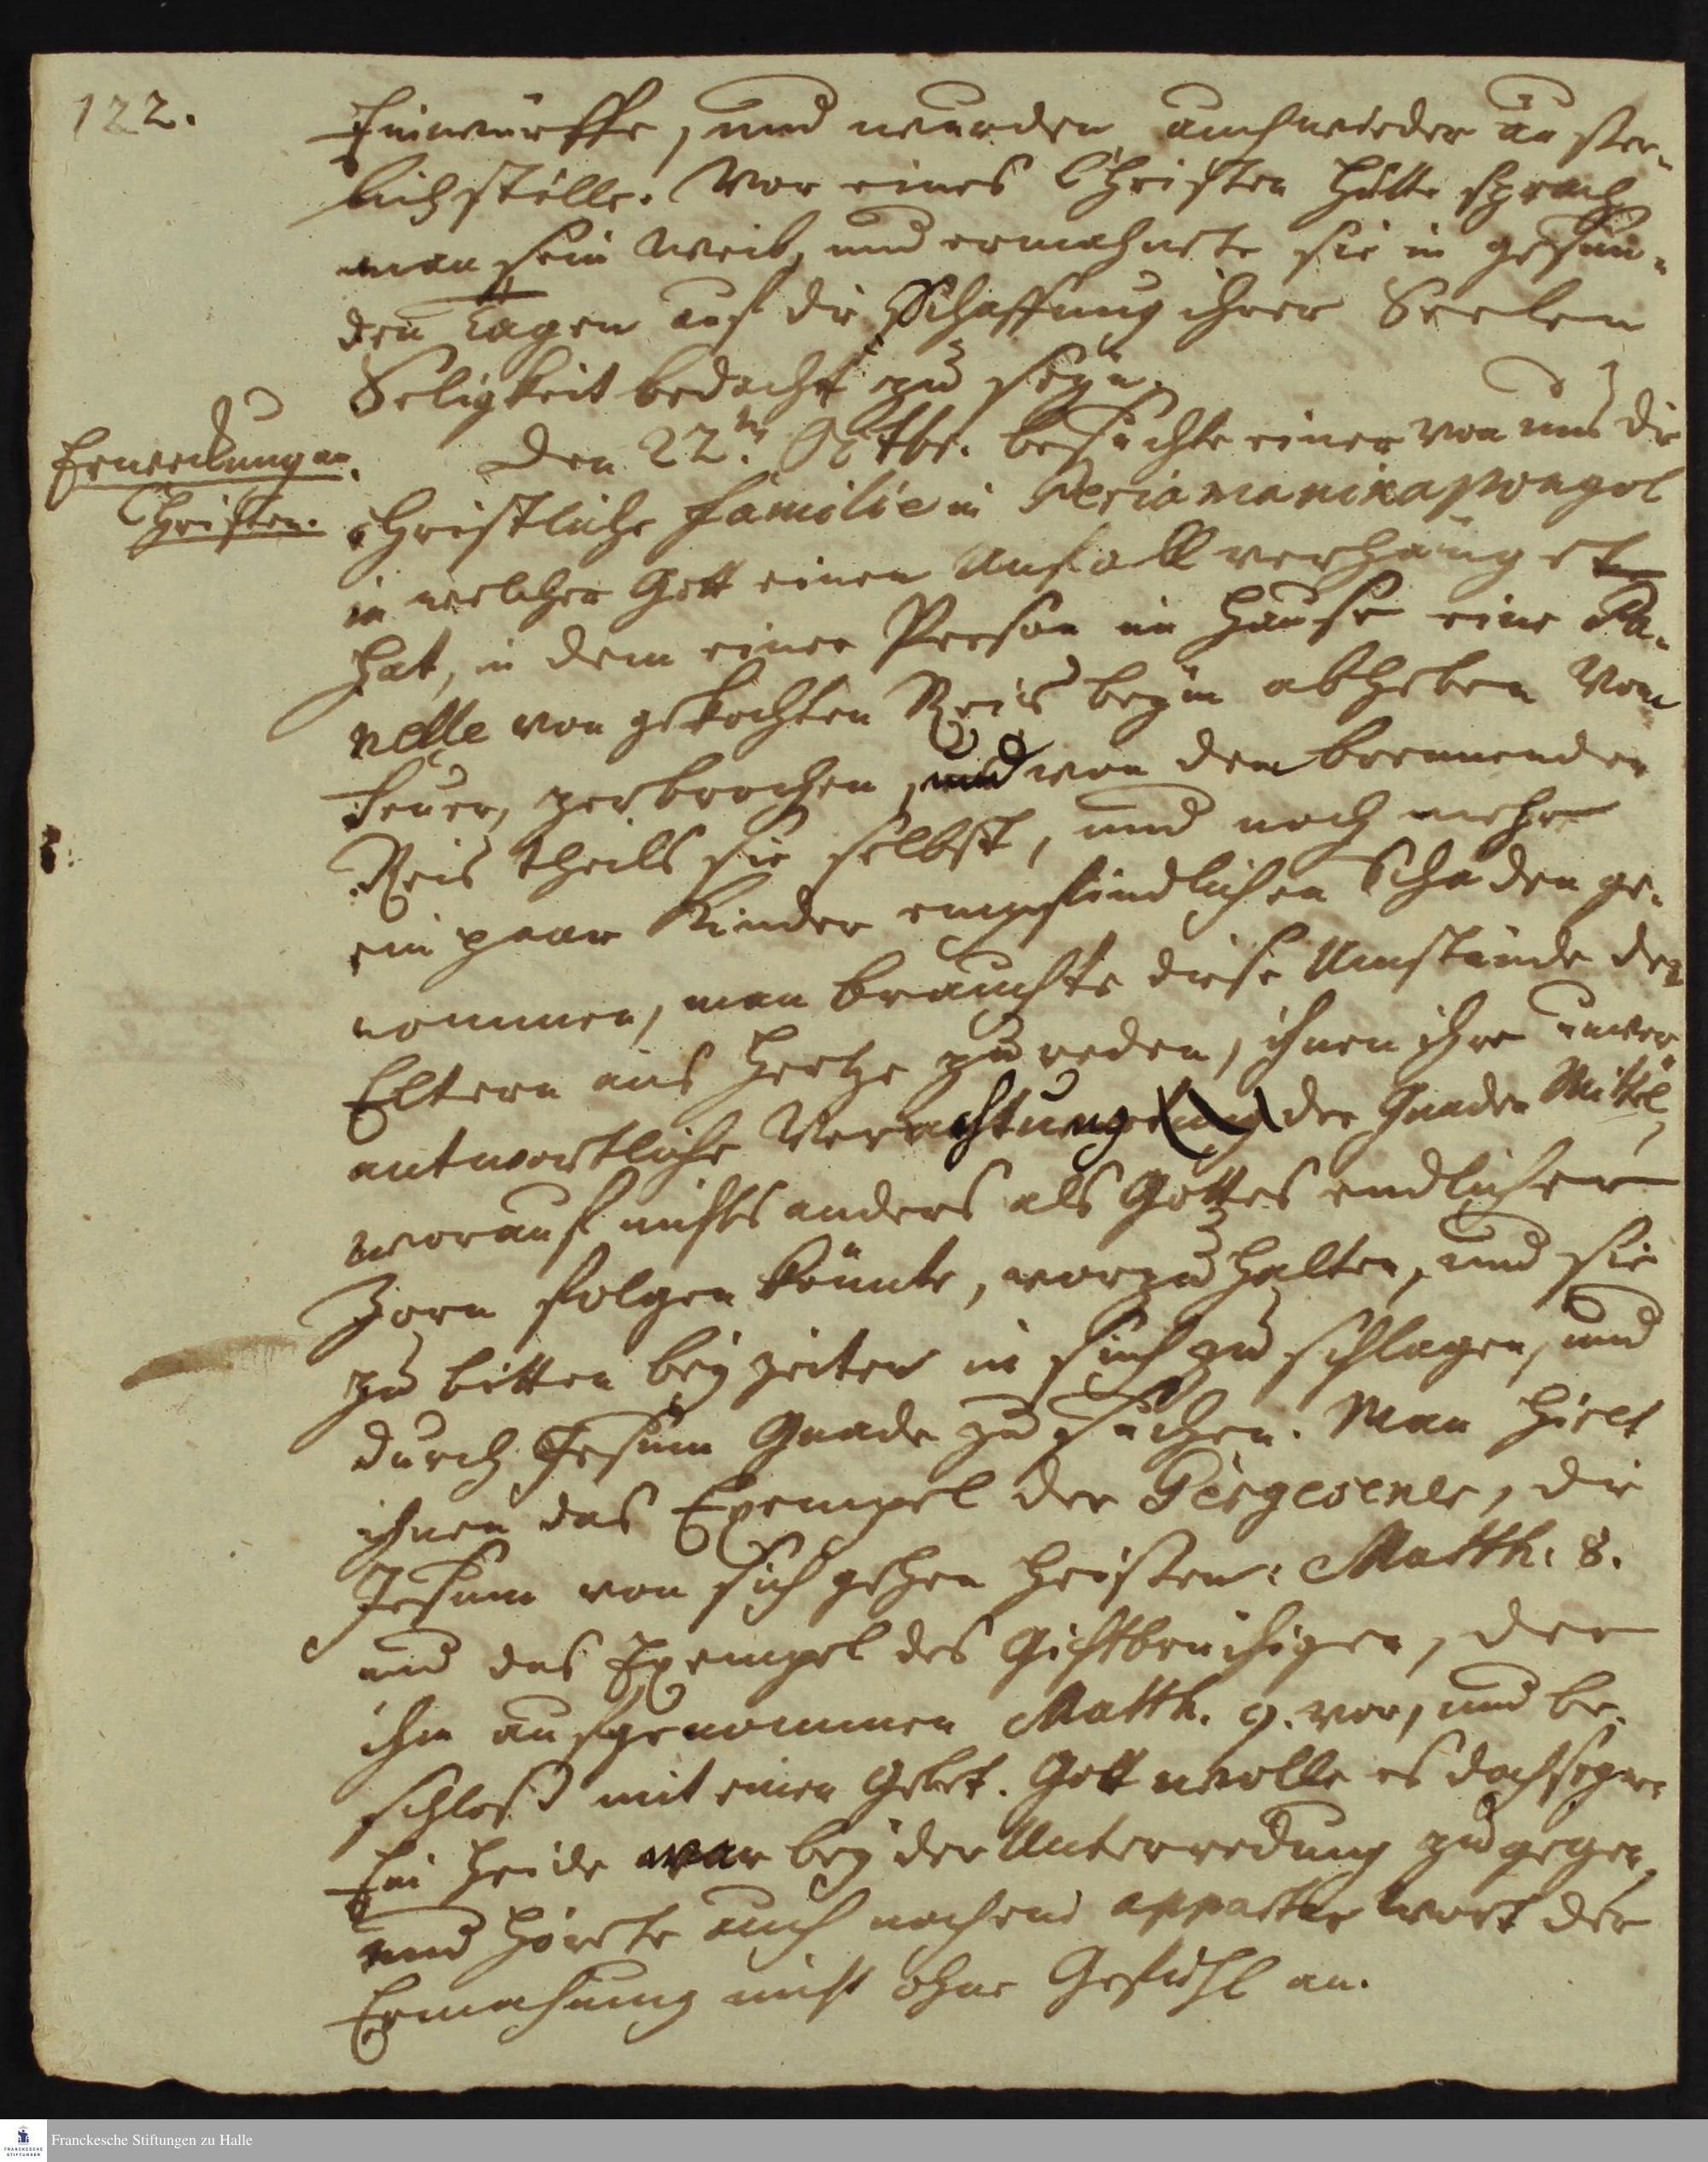 122.
Einwürffe, und wurden auch wieder äuser-
lich stille. Vor eines Christen Hütte sprach
man sein Weib, und ermahnete sie in gesun-
den Tagen auf die Schaffung ihrer Seelen
Seligkeit bedacht zu seyn.
Erweckung an
Christen.
Den 22.ten Octbr. besuchte einer von uns die
Christliche Familie in Periamanikapongol
in welcher Gott einen Unfall verhänget
hat, in dem einer Person im Hause eine Pa-
nelle von gekochten Reis beym abheben vom
Feuer, zerbrochen, und von dem brennenden
Reis theils sie selbst, und noch mehr
ein paar Kinder empfindlichen Schaden ge-
nommen, man brauchte diese Umstände den
Eltern ans Hertze zu reden, ihnen ihre unver-
antwortliche Verachtung der Gnaden Mittel,
worauf nichts anders als Gottes endlicher
Zorn folgen könnte, vorzuhalten, und sie
zu bitten bey zeiten in sich zu schlagen, und
durch Jesum Gnade zu suchen. Man hielt
ihnen das Exempel der Gergesener, die
Jesum von sich gehen heissen: Matth. 8.
und das Exempel des Gichtbrüchigen, der
ihn aufgenommen Matth. 9. vor, und be-
schloss mit einen Gebet. Gott wolle es doch segnen
Ein Heide war bey der Unterredung zugegen,
und hörete auch noch ein appartes Wort der
Ermahnung nicht ohne Gefühl an.
Franckesche Stiftungen zu Halle